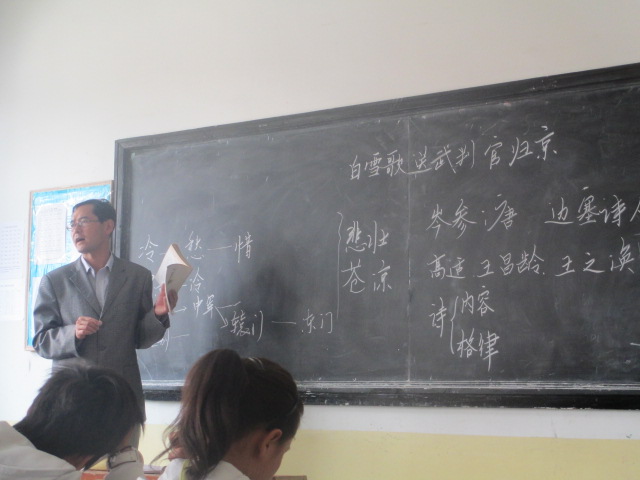 白雪歌送武判官归京
岑参:唐 边塞诗人
高适 王昌龄 王之涣
诗 内容
格律
悲壮
苍凉
冷 愁——惜
冷
中军
辕门——东门